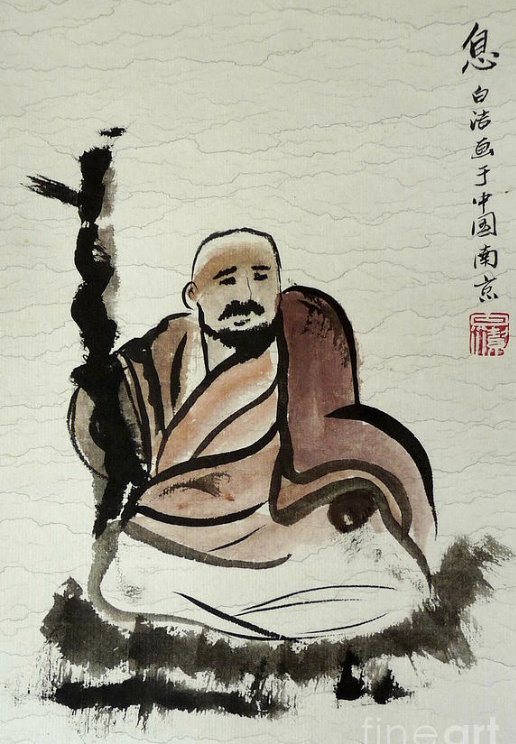 息
白洁画于中国南京
fineart